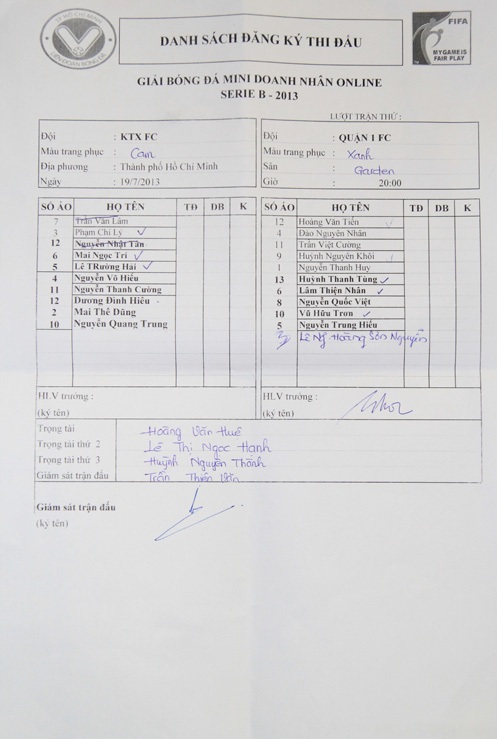 TP HỒ CHÍ MINH
LIÊN ĐOÀN BÓNG ĐÁ
DANH SÁCH ĐĂNG KÝ THI ĐẤU
FIFA
MY GAME IS
FAIR PLAY
GIẢI BÓNG ĐÁ MINI DOANH NHÂN ONLINE
SERIE B - 2013
LƯỢT TRẬN THỨ :
Đội : KTX FC
Màu trang phục : Cam
Địa phương : Thành phố Hồ Chí Minh
Ngày : 19/7/2013
Đội : QUẬN 1 FC
Màu trang phục : Xanh
Sân : Garden
Giờ : 20:00
SỐ ÁO HỌ TÊN TĐ DB K
7 Trần Văn Lâm
3 Phạm Chí Lý
12 Nguyễn Nhật Tân
6 Mai Ngọc Trí
5 Lê TRường Hải
4 Nguyễn Võ Hiếu
11 Nguyễn Thanh Cường
12 Dương Đình Hiếu
2 Mai Thế Dũng
10 Nguyễn Quang Trung
SỐ ÁO HỌ TÊN TĐ DB K
12 Hoàng Văn Tiến
4 Đào Nguyên Nhân
11 Trần Việt Cường
9 Huỳnh Nguyên Khôi
1 Nguyễn Thanh Huy
13 Huỳnh Thanh Tùng
6 Lâm Thiện Nhân
8 Nguyễn Quốc Việt
10 Võ Hữu Trơn
5 Nguyễn Trung Hiếu
Hoàng Sơn Nguyên
HLV trưởng :
(ký tên)
HLV trưởng :
(ký tên)
Trọng tài Hoàng Văn Huê
Trọng tài thứ 2 Lê Thị Ngọc Hạnh
Trọng tài thứ 3 Huỳnh Nguyên Thành
Giám sát trận đấu Trần Thiện
Giám sát trận đấu
(ký tên)